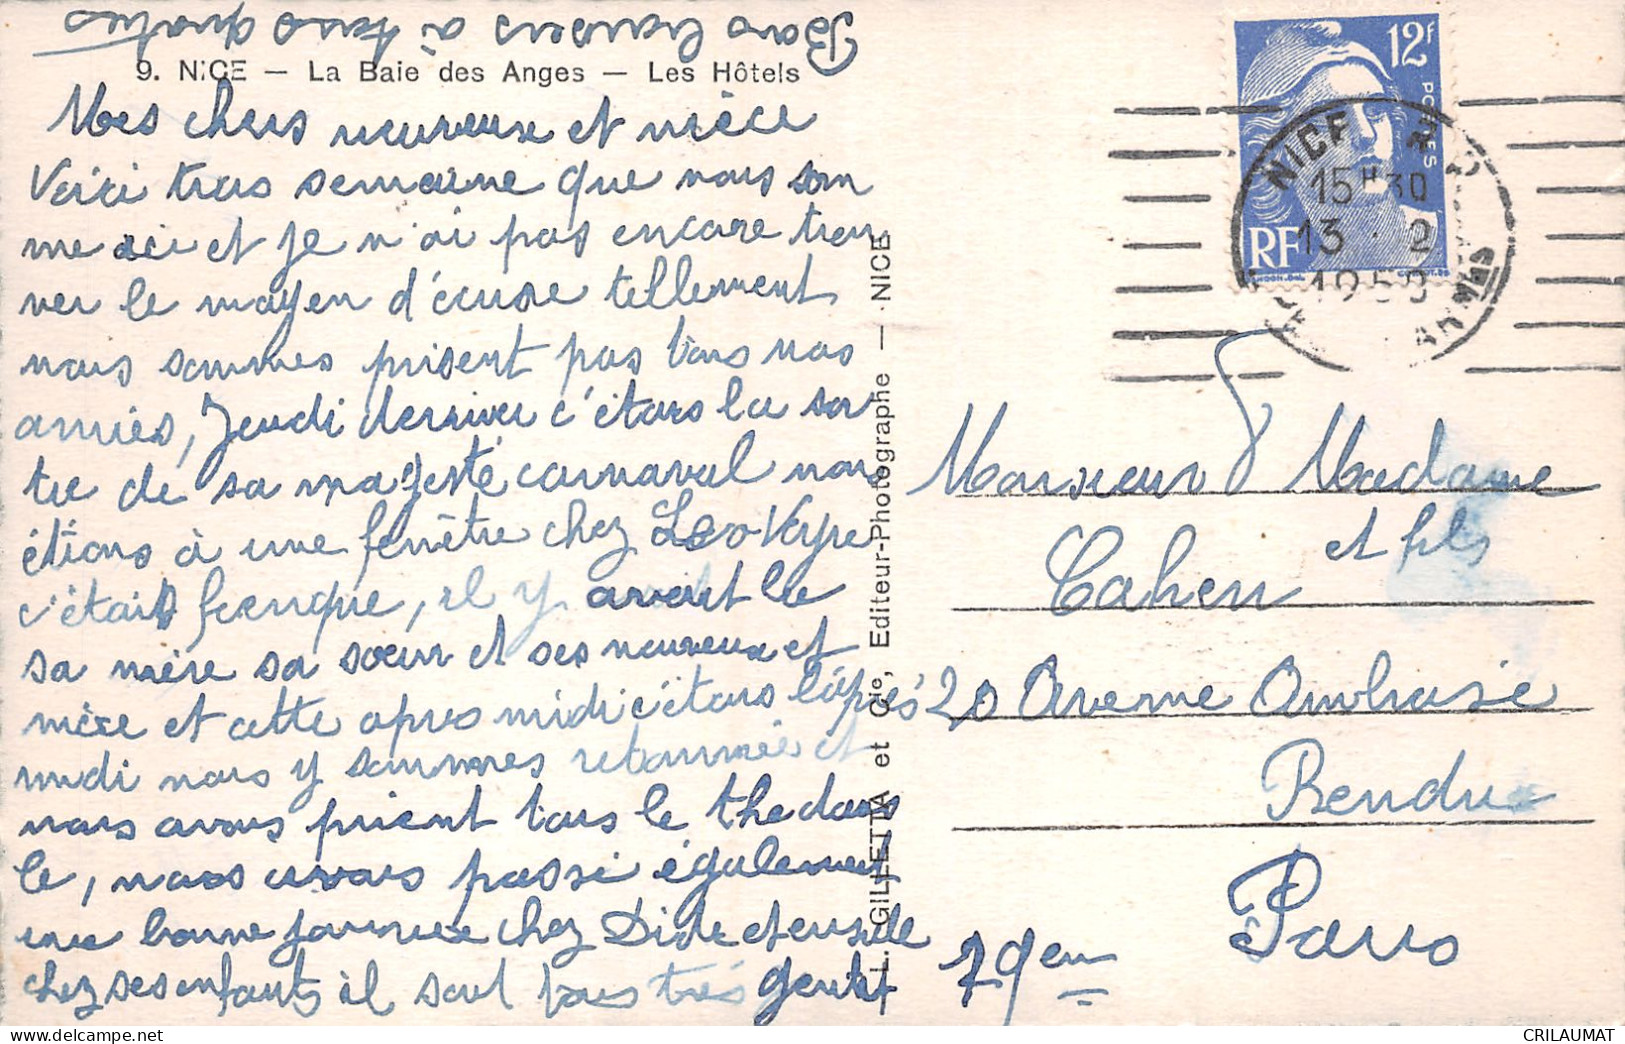 Bons baisers à tous quatres
9. NICE — La Baie des Anges — Les Hôtels
Mes chers neuveuse et nièce
Voici trois semaine que nous som
me ici et je n'ai pas encore trou
ver le moyen d'écrire tellement
nous sommes prisent pas tous nos
amies, Jeudi dernier c'étais la sor
tie de sa majesté carnaval nous
étions à une fenêtre chez
c'était, il y avait le
sa mère sa sœur et ses neuveux et
nièce et cette après midi c'étais l'après
midi nous y sommes retournée et
nous avons prient tous le thé dans
le, nous avons passé également
une bonne journée chez Dide et ensuite
chez ses enfants il sont tous très gentil
L. GILLETTA et Cie, Editeur-Photographe — NICE
12F
POSTES
RF
NICE R.P.
15H30
13 - 2
1950
ALPES MARMES
Monsieur Madame
et fils
Cahen
20 Avenue Ambroise
Rendu
Paris
19em
CRILAUMAT